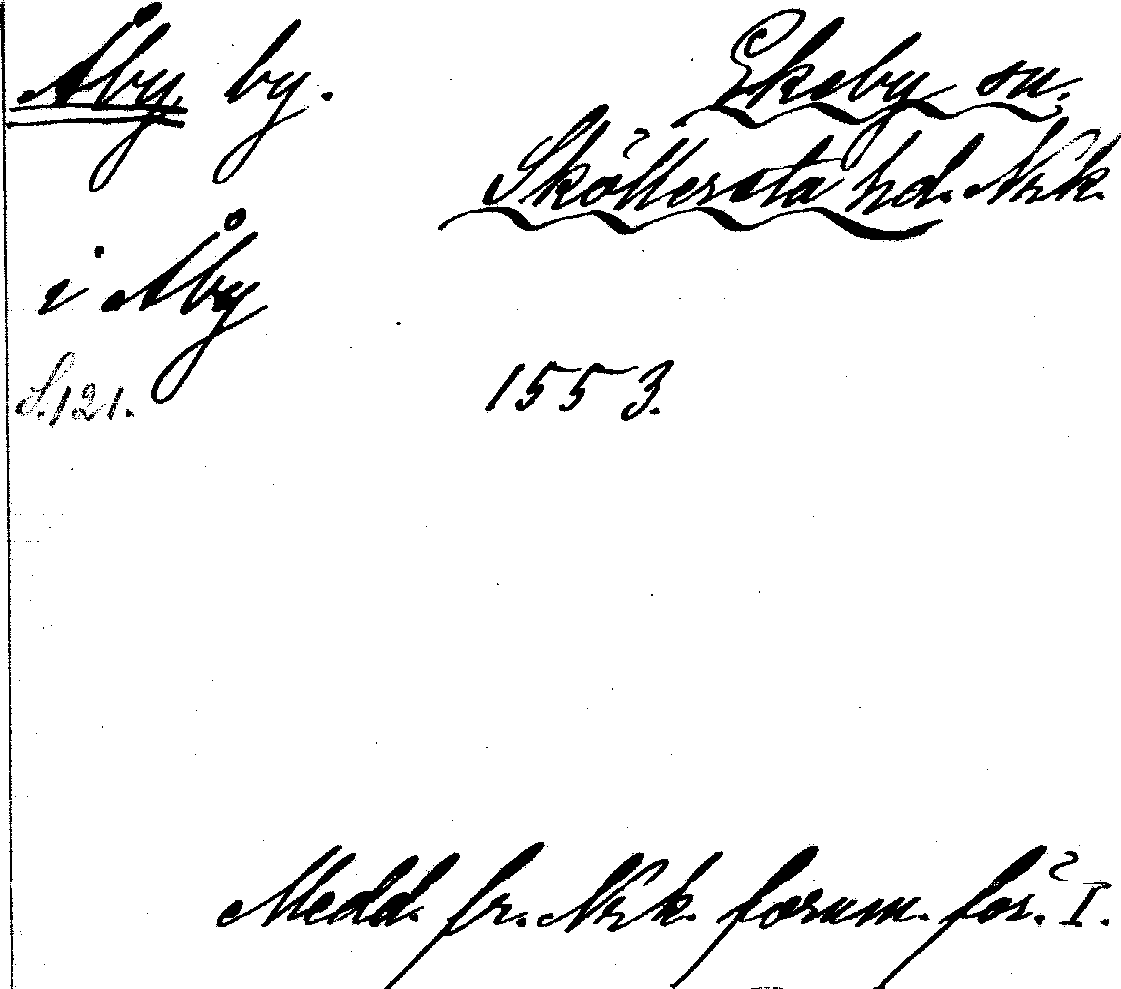 Åby by. Ekeby sn.
Sköllersta hd. Nrk.
i Åby
S. 121. 1553.
Medd. fr. Nrk. fornm. för. I.